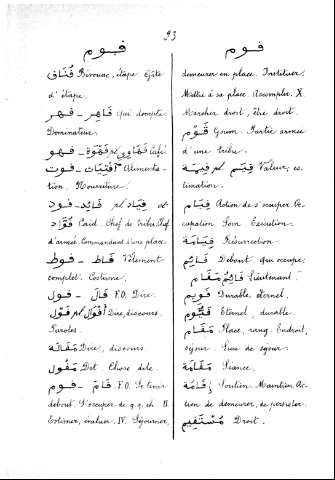 93
فـوم
فُنَاف Bivouac, étape. Gîte
d'étape.
فَاهِر – فهر Qui dompte
Dominateur.
فَهَاوِي pl فَهْوَة – فهو Café
أفْتِيَات – فوت Alimenta-
tion. Nourriture.
فِيَاد pl فَائِد – فود et
فُوَّاد Caïd. Chef de tribu, Chef
d'armée, Commandant d'une place.
فَاط – فوط Vêtement
complet. Costume.
فَالَ – فول F.O. Dire.
أفْوَال pl فَوْل Dire, discours.
Paroles.
مَفَالَة Dire, discours
مَفُول Dit. Chose dite.
فَامَ – فوم F.O. Se tenir
debout. S'occuper de q.q. ch. II.
Estimer, évaluer. IV. Séjourner,
فـوم
demeurer en place. Instituer.
Mettre à sa place. Accomplir. X.
Marcher droit, être droit.
فَوْم Goum. Partie armée
d'une tribu.
فِيَم pl فِيمَة Valeur, es-
timation.
فِيَام Action de s'occuper. Oc-
cupation. Soin. Exécution.
فِيَامَة Résurrection.
فَائِم Debout, qui occupe.
فَائِم مَفَام Lieutenant.
فَوِيم Durable, éternel.
فَيُّوم Eternel, durable.
مَفَام Place, rang. Endroit,
séjour. Lieu de séjour.
مَفَامَة Séance.
إفَامَة Soutien. Maintien. Ac-
tion de demeurer, de persister.
مُسْتَفِيم Droit.